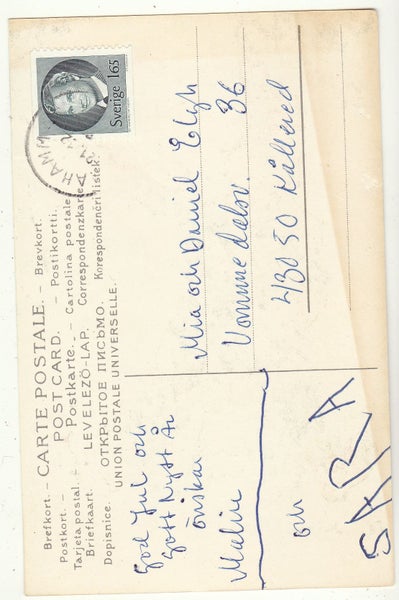 Brefkort. – CARTE POSTALE. – Brevkort.
Postkort. – POST CARD. – Postikortti.
Tarjeta postal. – Postkarte. – Cartolina postale.
Briefkaart. LEVELEZŐ-LAP. Correspondenzkarte.
Dopisnice. ОТКРЫТОЕ ПИСЬМО. Korespondenční lístek.
UNION POSTALE UNIVERSELLE.
Sverige 165
God Jul och
Gott Nytt År
önskar
Malin
och
SARA
Mia och Daniel
36
430 50 Kållered